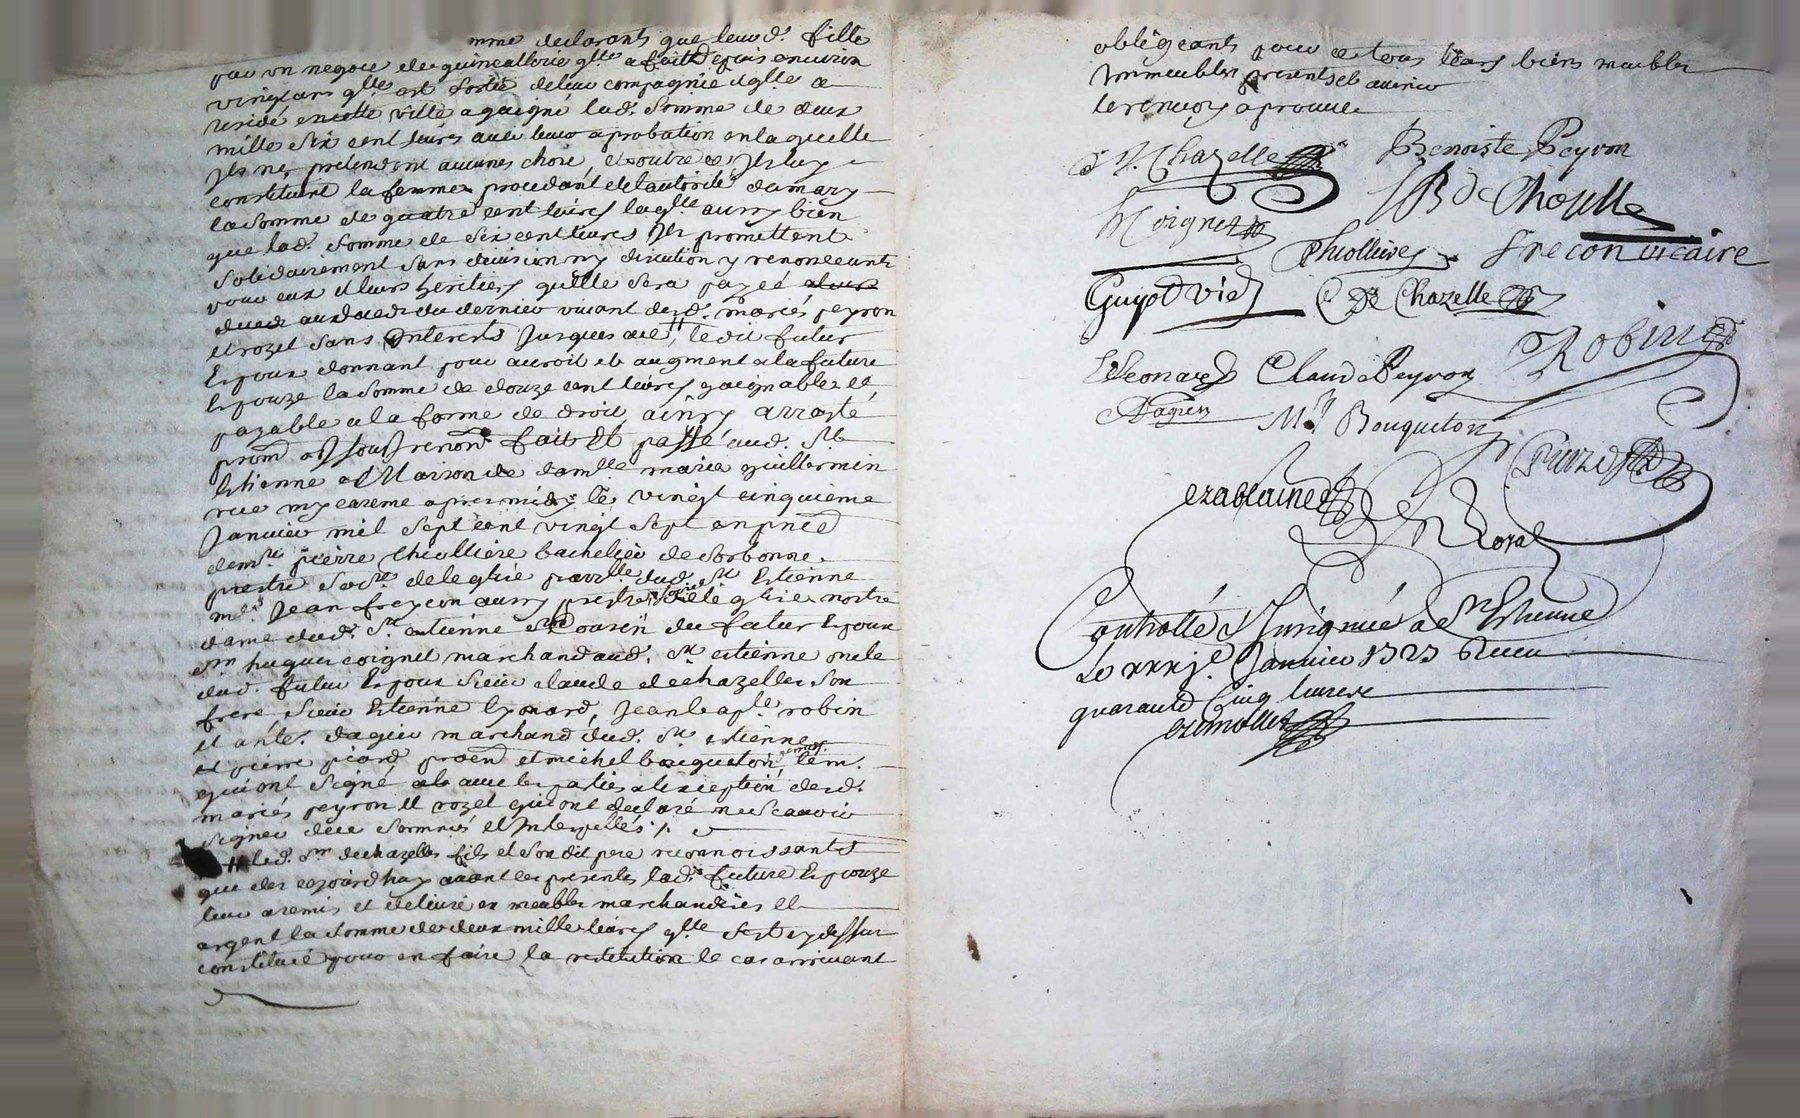 mme declarants que leurd. fille
par un negoce de quincallerie qlle a fait depuis environ
vingt ans qlle est sortie de leur compagnie et qlle
reside en cette ville a gaigné lad. somme de deux
mille six cent livres avec leur aprobation en laquelle
ils ne pretendent aucunes chose, et outre ce ils luy
constituent la femme procedant de l'autorité du mary
la somme de quatre cent livres laqlle aussy bien
que lad. somme de six cent livres ils promettent
solidairement sans division ny discution y renonceants
pour eux et leurs heritiers qu'elle sera payeé
du dernier vivant desd. mariés peyron
et rozet sans interests jusques alle // ledit futur
Espoux donnant pour auroit et augment a la future
Espouze la somme de douze cent livres gaignables et
payable a la forme de droit ainsy arresté
prom. obl. soub. renon. fait et passé aud. St
Estienne maison de damlle marie guillermin
rue my careme apres midy le vingt cinquieme
Janvier mil sept cent vingt sept en pnce
de mre pierre thiolliere bachelier de sorbonne
prestre soc.re de leglise parrlle dud. St Estienne
mre Jean freycon aussy prestre de leglise nostre
dame dud. St estienne cousin du futur Espoux
Sr hugues coignet marchand aud. St estienne oncle
dud. futur Espoux sieur claude dechazelles son
frere sieur Estienne leonard, Jean baple robin
et ante. dagier marchand dud. St estienne
et pierre picard procd et michel bouqueton, tem.
qui ont signé avec les parties a l'exeption desd.
mariés peyron et rozet qui ont declaré ne scavoir
signer de ce sommés et interpellés /.
// led. Sr dechazelles fils et son dit pere reconnoissants
que des cejourdhuy avant ces presentes lad. future Espouze
leur a remis et delivré en meubles marchandises et
argent la somme de deux mille livres qlle sest cy dessus
constitueé pour en faire la restitution le cas arrivant
obligeants pour ce tous leurs biens meubles
Immeubles presents et avenir
le renvoy aprouve
Chazelle Benoiste Peyron
Coignet D Chazelle
Thiolliere frecon vicaire
Guyot C D Chazelle
Robin
E Leonard Claude Peyron
Dagier M. Bouqueton
Picard
Controllé & Insignué a St Estienne
Le xxxje. Janvier 1727 Receu
quarante cinq livres